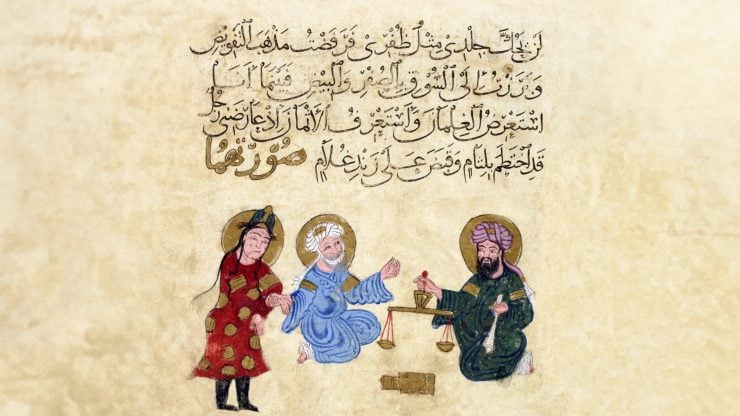 لن يحك جلدي مثل ظفري فرفضت مذهب التفويض
وبرزت إلى السوق بالصفر والبيض فبينما أنا
استعرض الغلمان واستعرف الأثمان إذ عارضني رجل
قد اختطم بلثام وقبض على زند غلام صورتهما